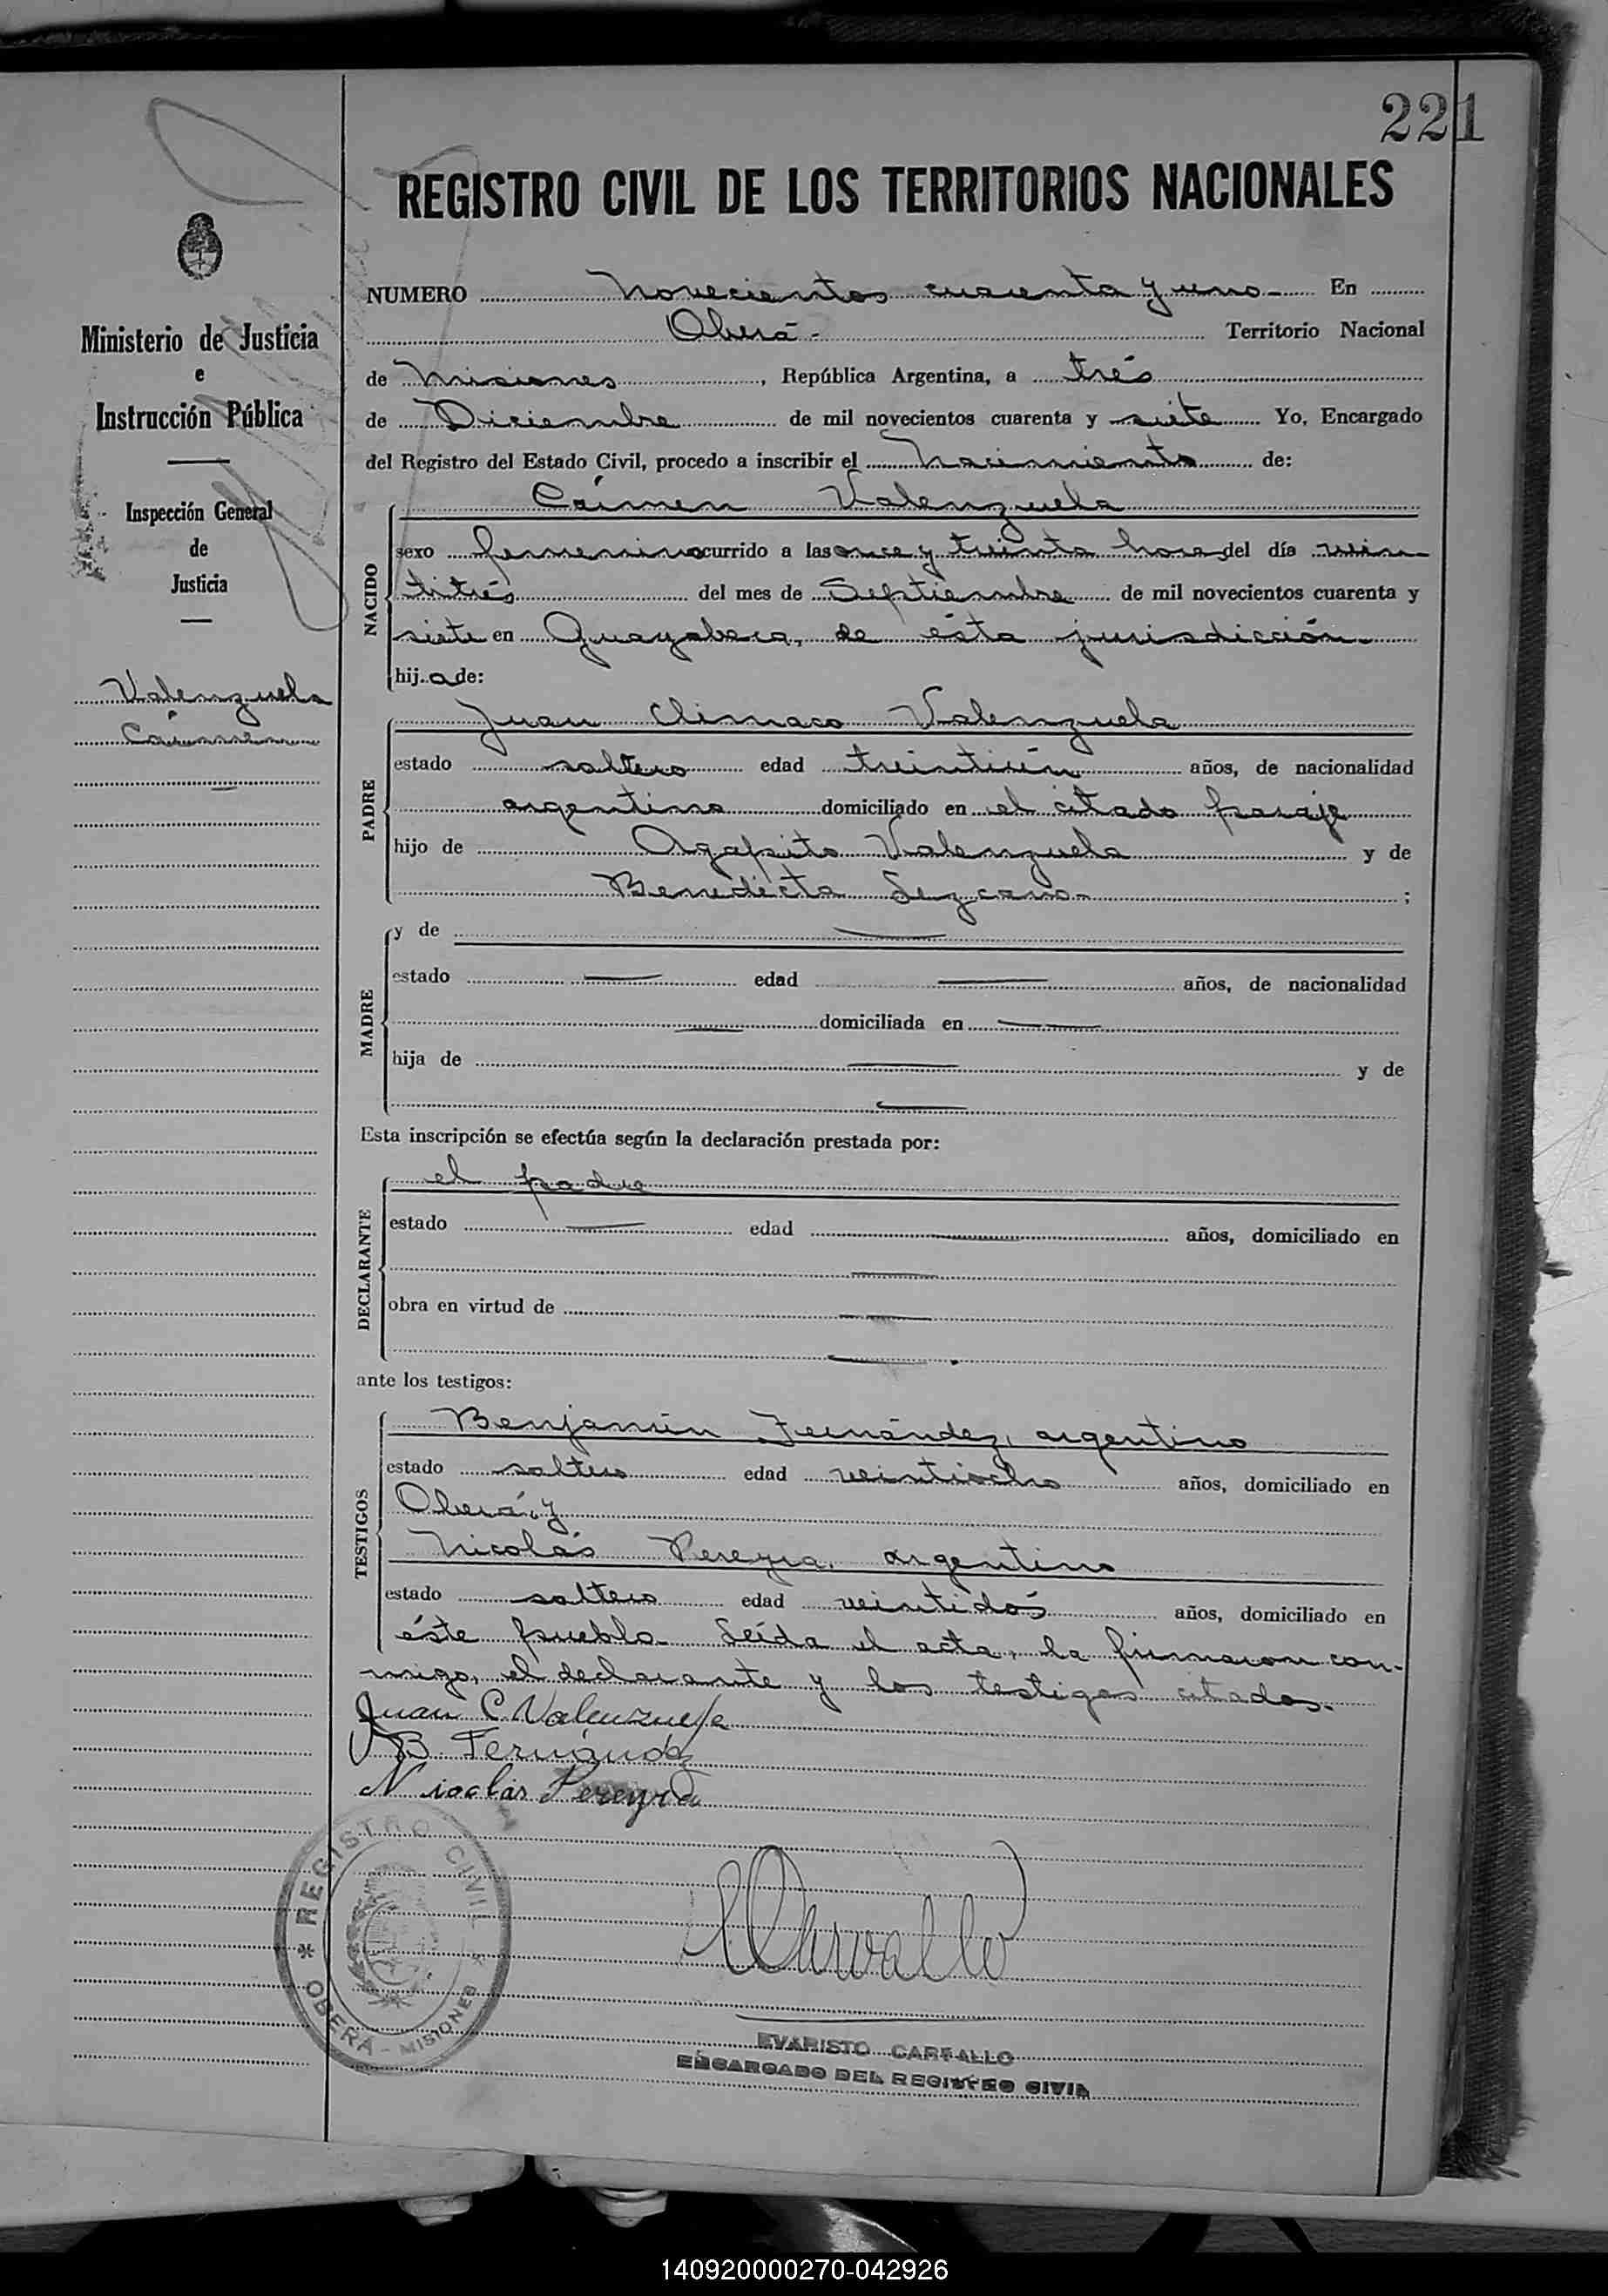 221
REGISTRO CIVIL DE LOS TERRITORIOS NACIONALES
NUMERO Novecientos cuarenta y uno - En
Oberá - Territorio Nacional
de Misiones, República Argentina, a trés
de Diciembre de mil novecientos cuarenta y siete Yo, Encargado
del Registro del Estado Civil, procedo a inscribir el Nacimiento de:
NACIDO
Cármen Valenzuela
sexo femenino ocurrido a las once y treinta horas del día vein-
titrés del mes de Septiembre de mil novecientos cuarenta y
siete en Guayabera, de ésta jurisdicción.
hij.a de:
PADRE
Juan Climaco Valenzuela
estado soltero edad treintiún años, de nacionalidad
argentino domiciliado en el citado paraje
hijo de Agapito Valenzuela y de
Benedicta Lezcano- ;
MADRE
y de —
estado — edad — años, de nacionalidad
— domiciliada en — —
hija de — y de
—
Esta inscripción se efectúa según la declaración prestada por:
DECLARANTE
el padre
estado — edad — años, domiciliado en
—
obra en virtud de —
—
ante los testigos:
TESTIGOS
Benjamín Fernández, argentino
estado soltero edad veintiocho años, domiciliado en
Oberá, y
Nicolás Pereyra, argentino
estado soltero edad veintidós años, domiciliado en
éste pueblo. Leída el acta, la firmaron con-
migo, el declarante y los testigos citados.
Juan C. Valenzuela
B. Fernández
Nicolás Pereyra
REGISTRO CIVIL
* OBERÁ - MISIONES *
ECarvallo
EVARISTO CARVALLO
ENCARGADO DEL REGISTRO CIVIL
Ministerio de Justicia
e
Instrucción Pública
Inspección General
de
Justicia
Valenzuela
Cármen
140920000270-042926